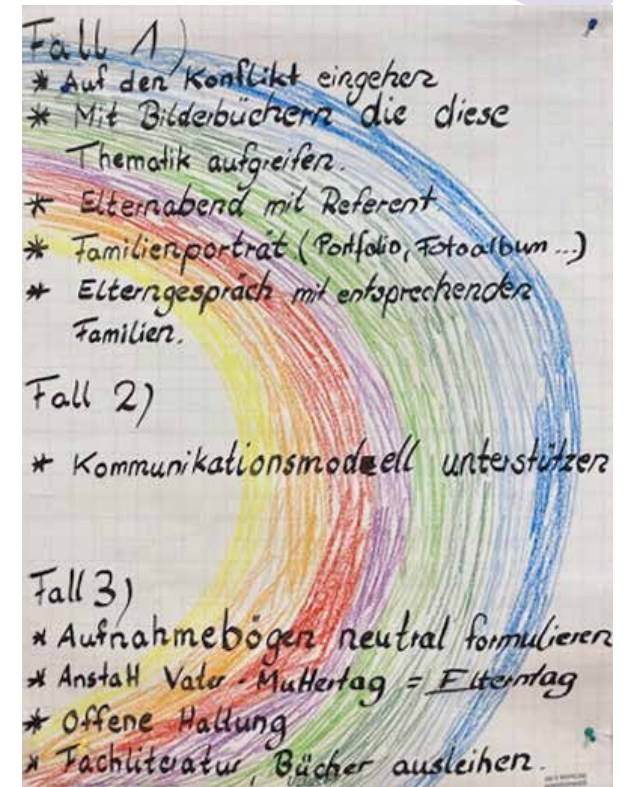 Fall 1)
* Auf den Konflikt eingehen
* Mit Bilderbüchern die diese
Thematik aufgreifen.
* Elternabend mit Referent.
* Familienporträt (Portfolio, Fotoalbum...)
* Elterngespräch mit entsprechenden
Familien.
Fall 2)
* Kommunikationsmodell unterstützen
Fall 3)
* Aufnahmebögen neutral formulieren
* Anstatt Vater-Muttertag = Elterntag
* Offene Haltung
* Fachliteratur, Bücher ausleihen.